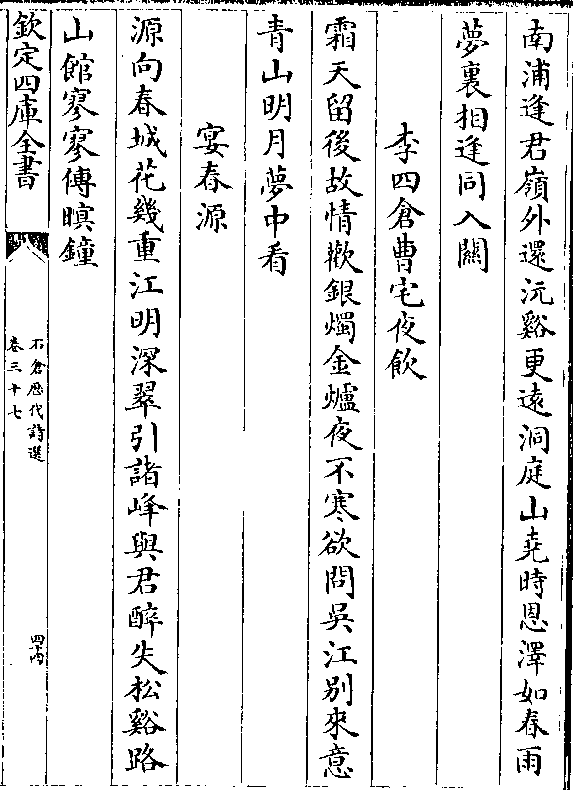 南浦逢君嶺外還沅谿更遠洞庭山堯時恩澤如春雨
夢裏相逢同入關
李四倉曹宅夜飲
霜天留後故情歡銀燭金爐夜不寒欲問吳江别來意
青山明月夢中看
宴春源
源向春城花幾重江明深翠引諸峰與君醉失松谿路
山館寥寥傳暝鐘
欽定四庫全書
石倉歷代詩選
卷三十七